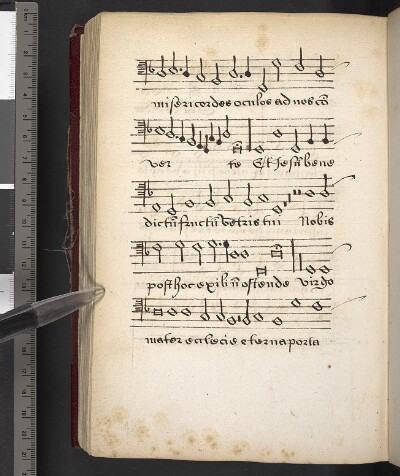 misericordes oculos ad nos cō
ver te Et Jesū bene
dictū fructū vētris tui Nobis
post hoc exiliū ostende virgo
mater ecclecie eterna porta